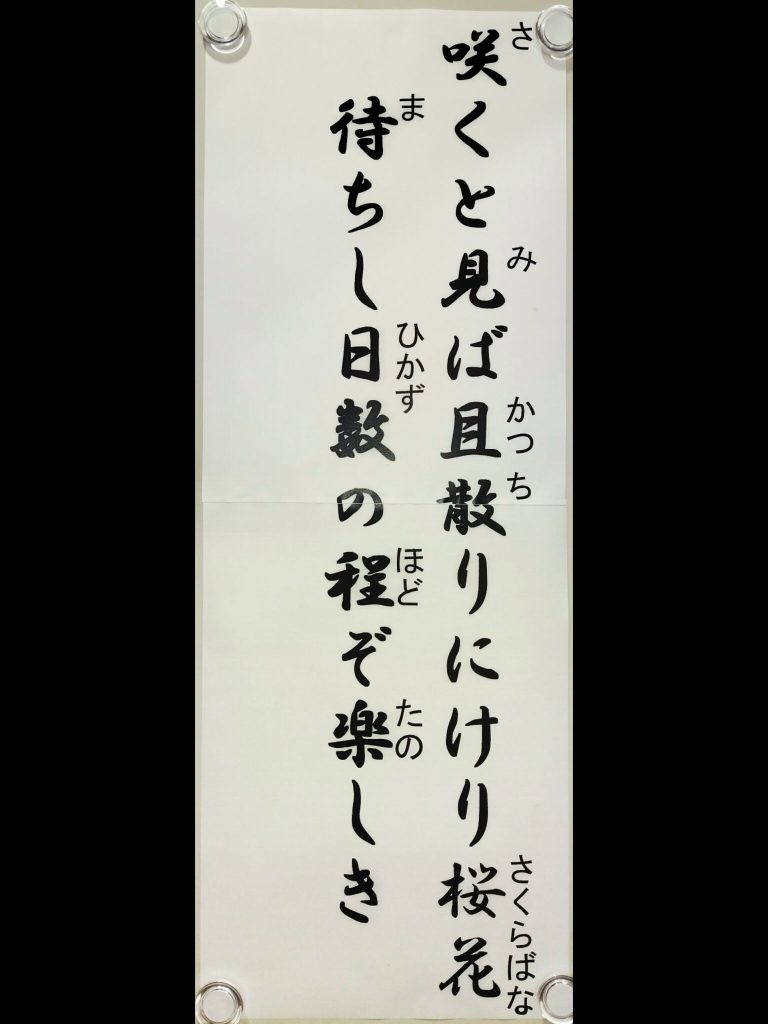 咲くと見ば且散りにけり桜花
さ み かつち さくらばな
待ちし日数の程ぞ楽しき
ま ひかず ほど たの